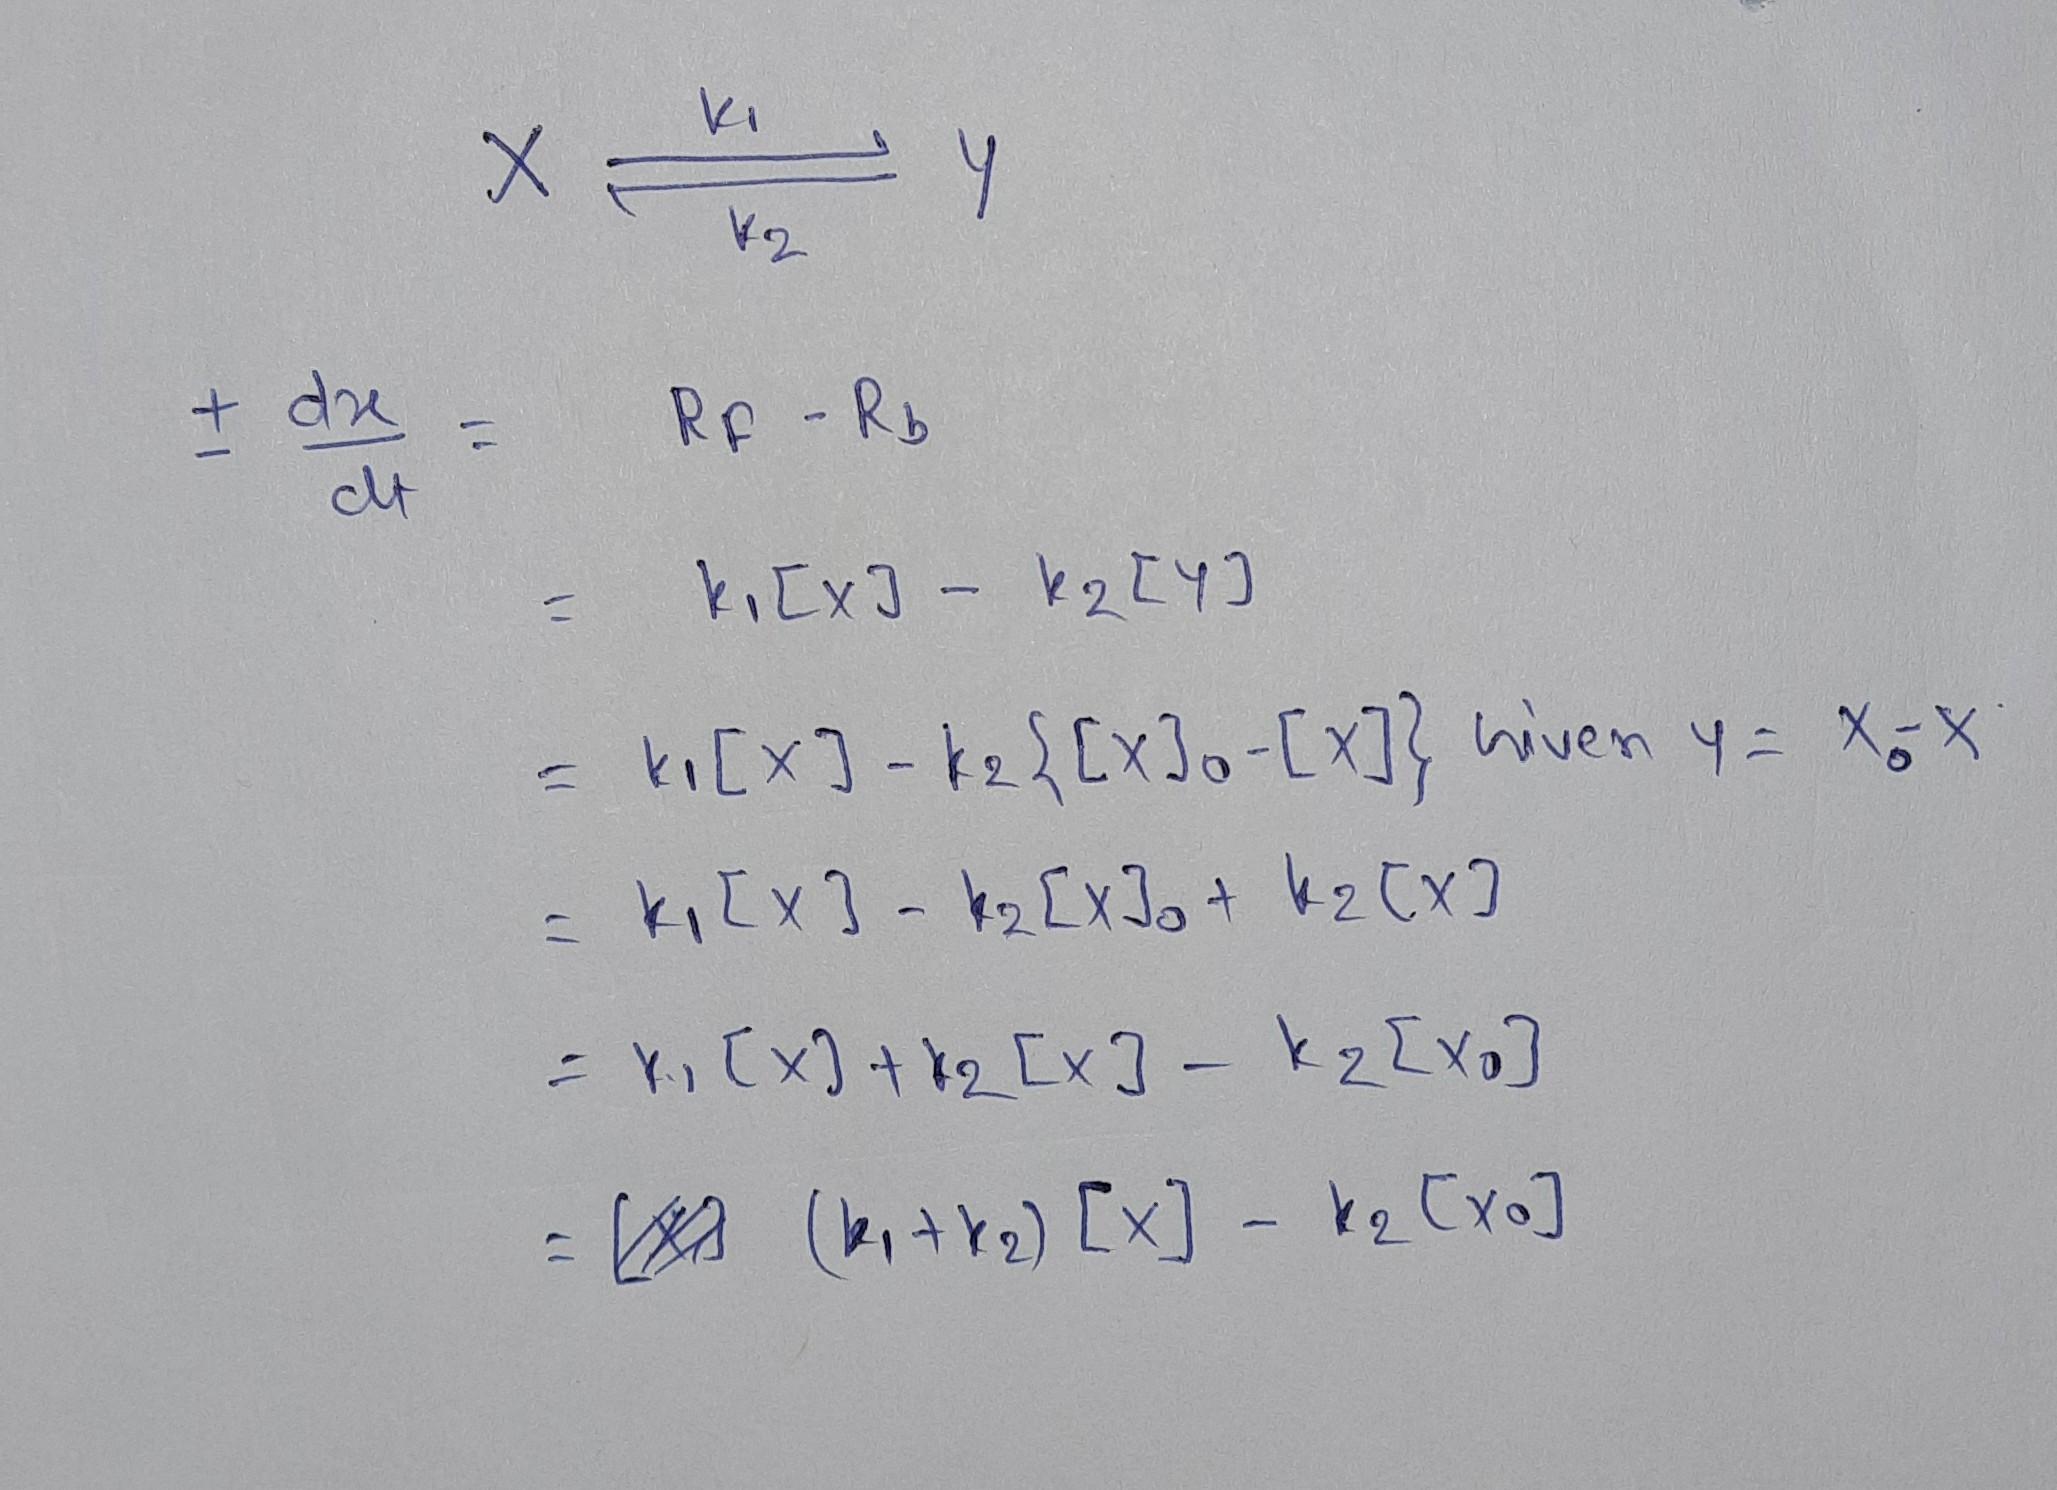 k₁
X ⇌ Y
k₂
± dx/dt = Rf - Rb
= k₁[X] - k₂[Y]
= k₁[X] - k₂{[X]₀-[X]} Given Y = X₀-X
= k₁[X] - k₂[X]₀ + k₂[X]
= k₁[X] + k₂[X] - k₂[X₀]
= (k₁+k₂)[X] - k₂[X₀]